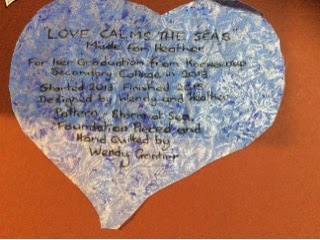 "LOVE CALMS THE SEAS"
Made for Heather
For her Graduation from Koo
Secondary College in 2013
Started 2013 Finished 2015
Designed by Wendy and Heather
Pattern, Storm at Sea,
Foundation Pieced and
Hand Quilted by
Wendy